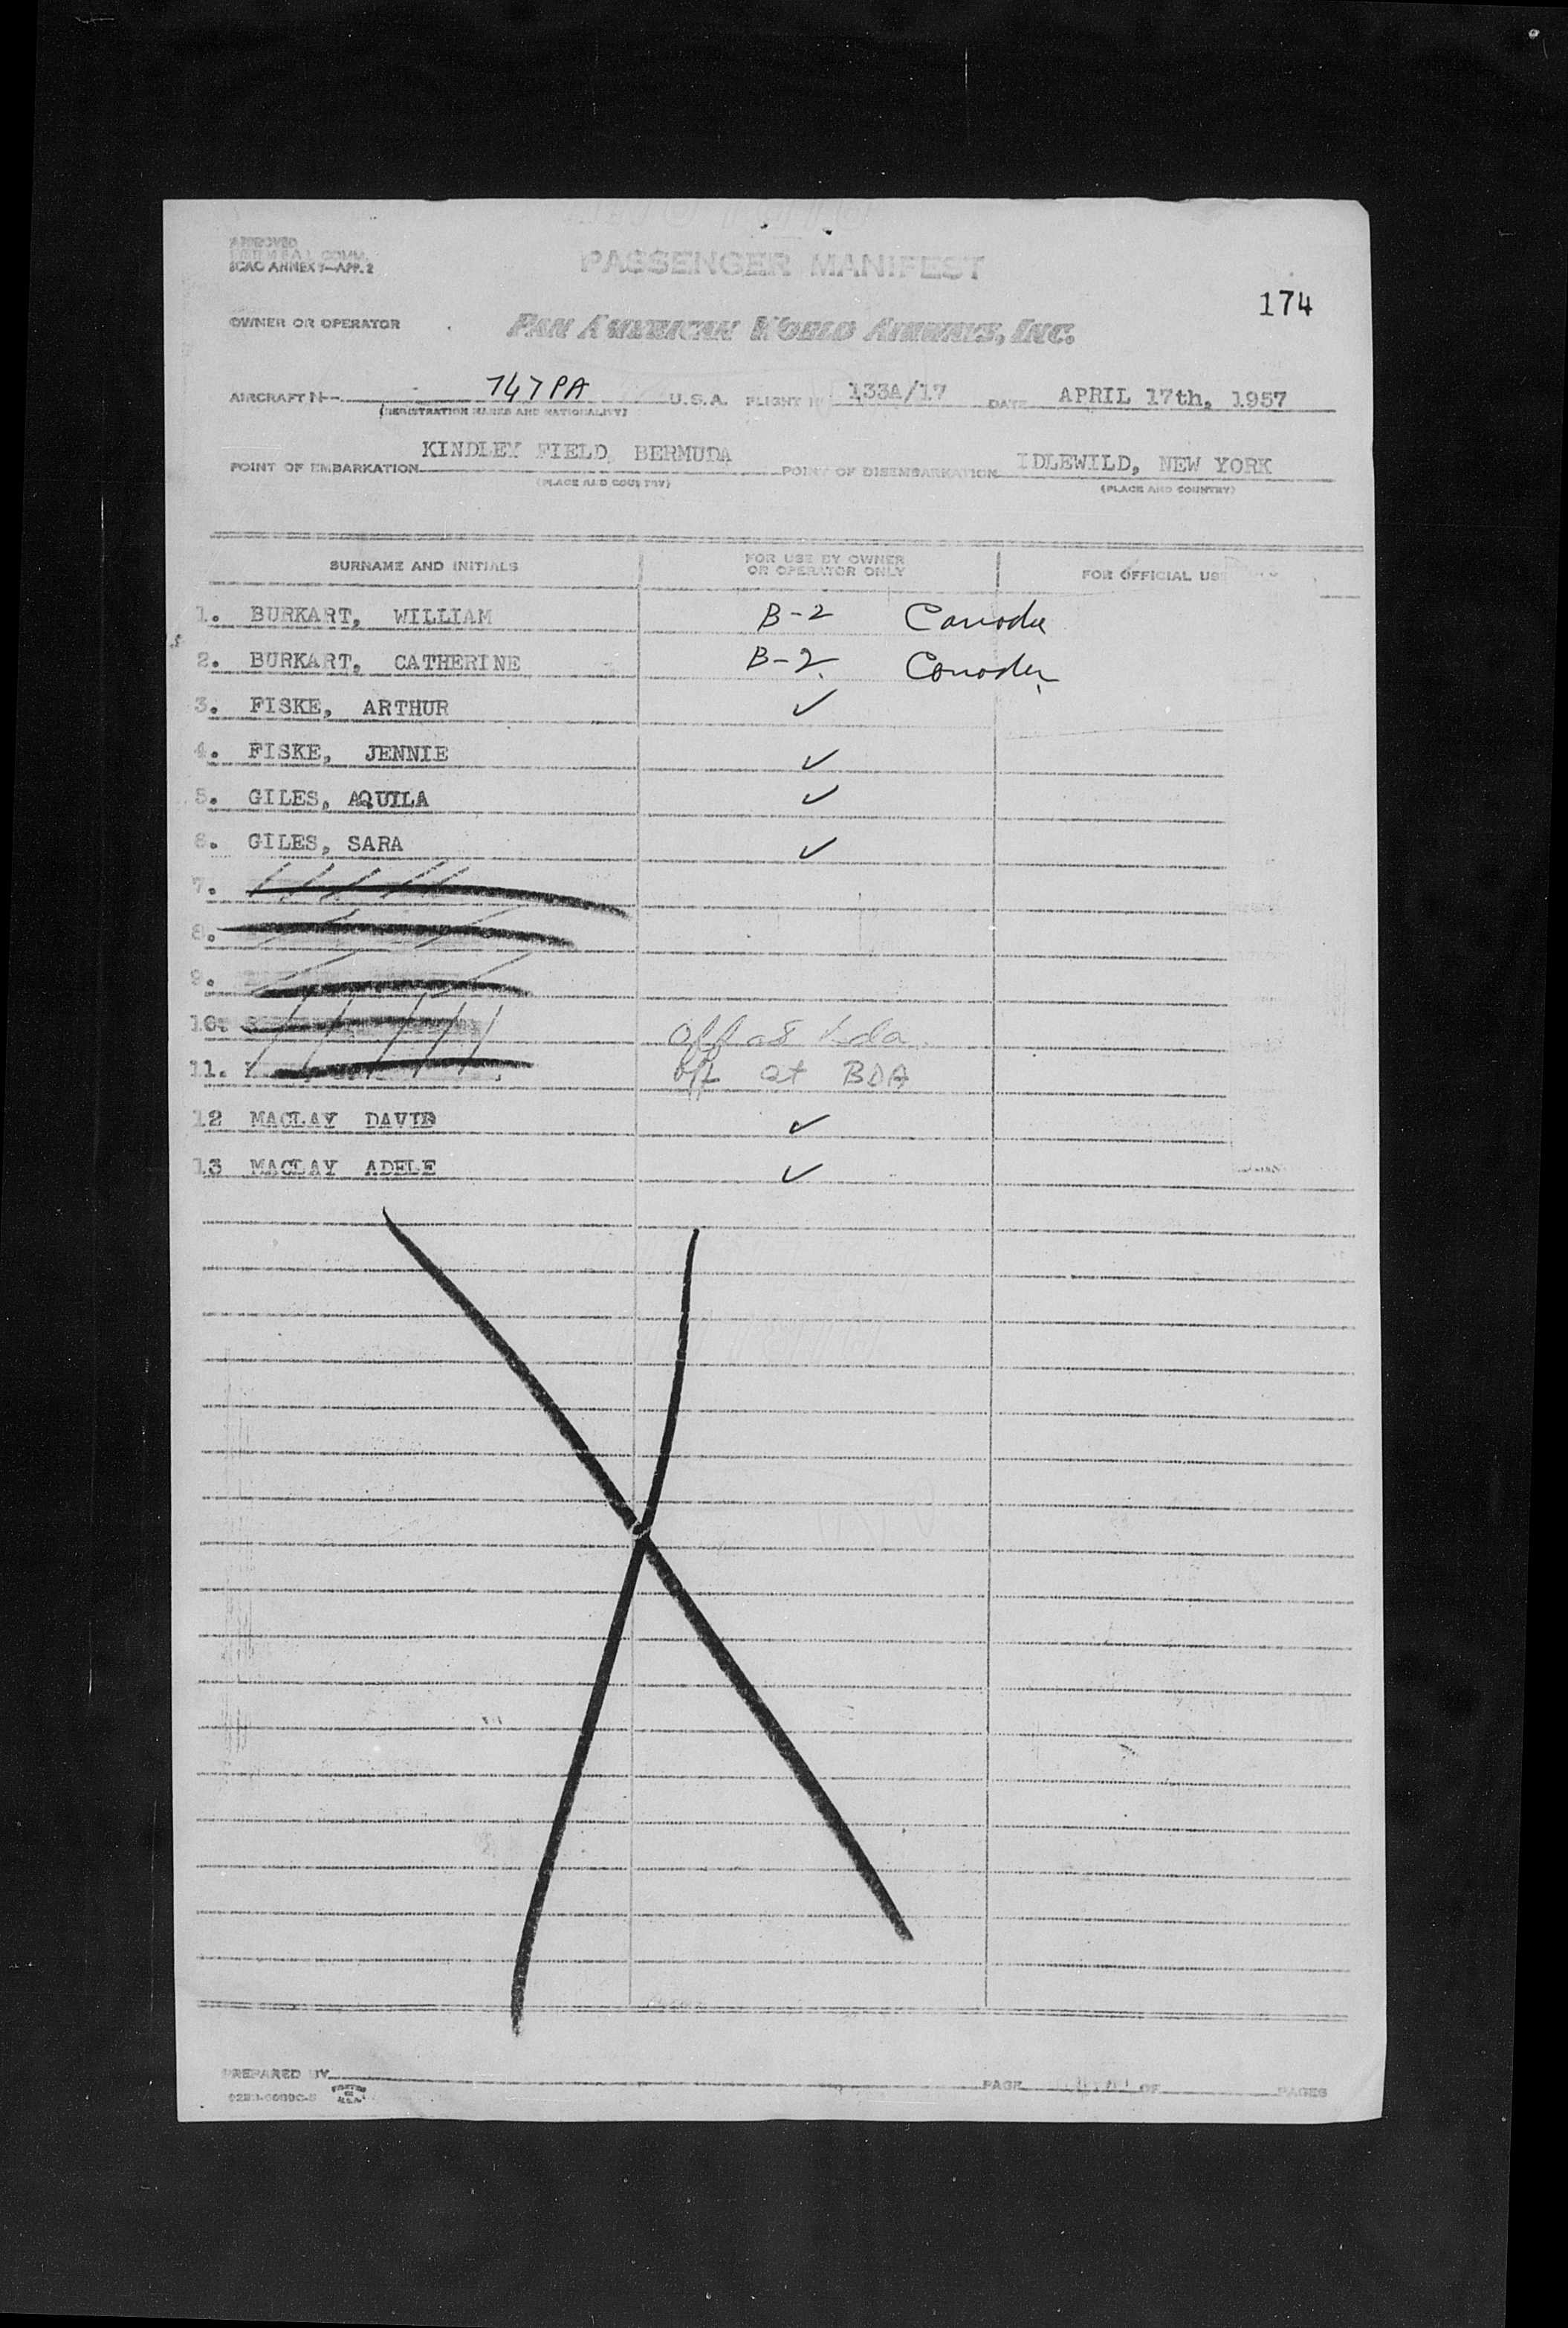 APPROVED
ICAO ANNEX 9—APP. 2
PASSENGER MANIFEST
174
OWNER OR OPERATOR PAN AMERICAN WORLD AIRWAYS, INC.
AIRCRAFT N— 747PA U.S.A. FLIGHT N 133A/17 DATE APRIL 17th, 1957
(REGISTRATION MARKS AND NATIONALITY)
POINT OF EMBARKATION KINDLEY FIELD, BERMUDA POINT OF DISEMBARKATION IDLEWILD, NEW YORK
(PLACE AND COUNTRY) (PLACE AND COUNTRY)
SURNAME AND INITIALS FOR USE BY OWNER OR OPERATOR ONLY FOR OFFICIAL USE
1. BURKART, WILLIAM B-2 Canada
2. BURKART, CATHERINE B-2 Canada
3. FISKE, ARTHUR ✓
4. FISKE, JENNIE ✓
5. GILES, AQUILA ✓
6. GILES, SARA ✓
7.
8.
9.
10. off at bda
11. off at BDA
12 MACLAY DAVID ✓
13 MACLAY ADELE ✓
PREPARED BY PAGE OF PAGES